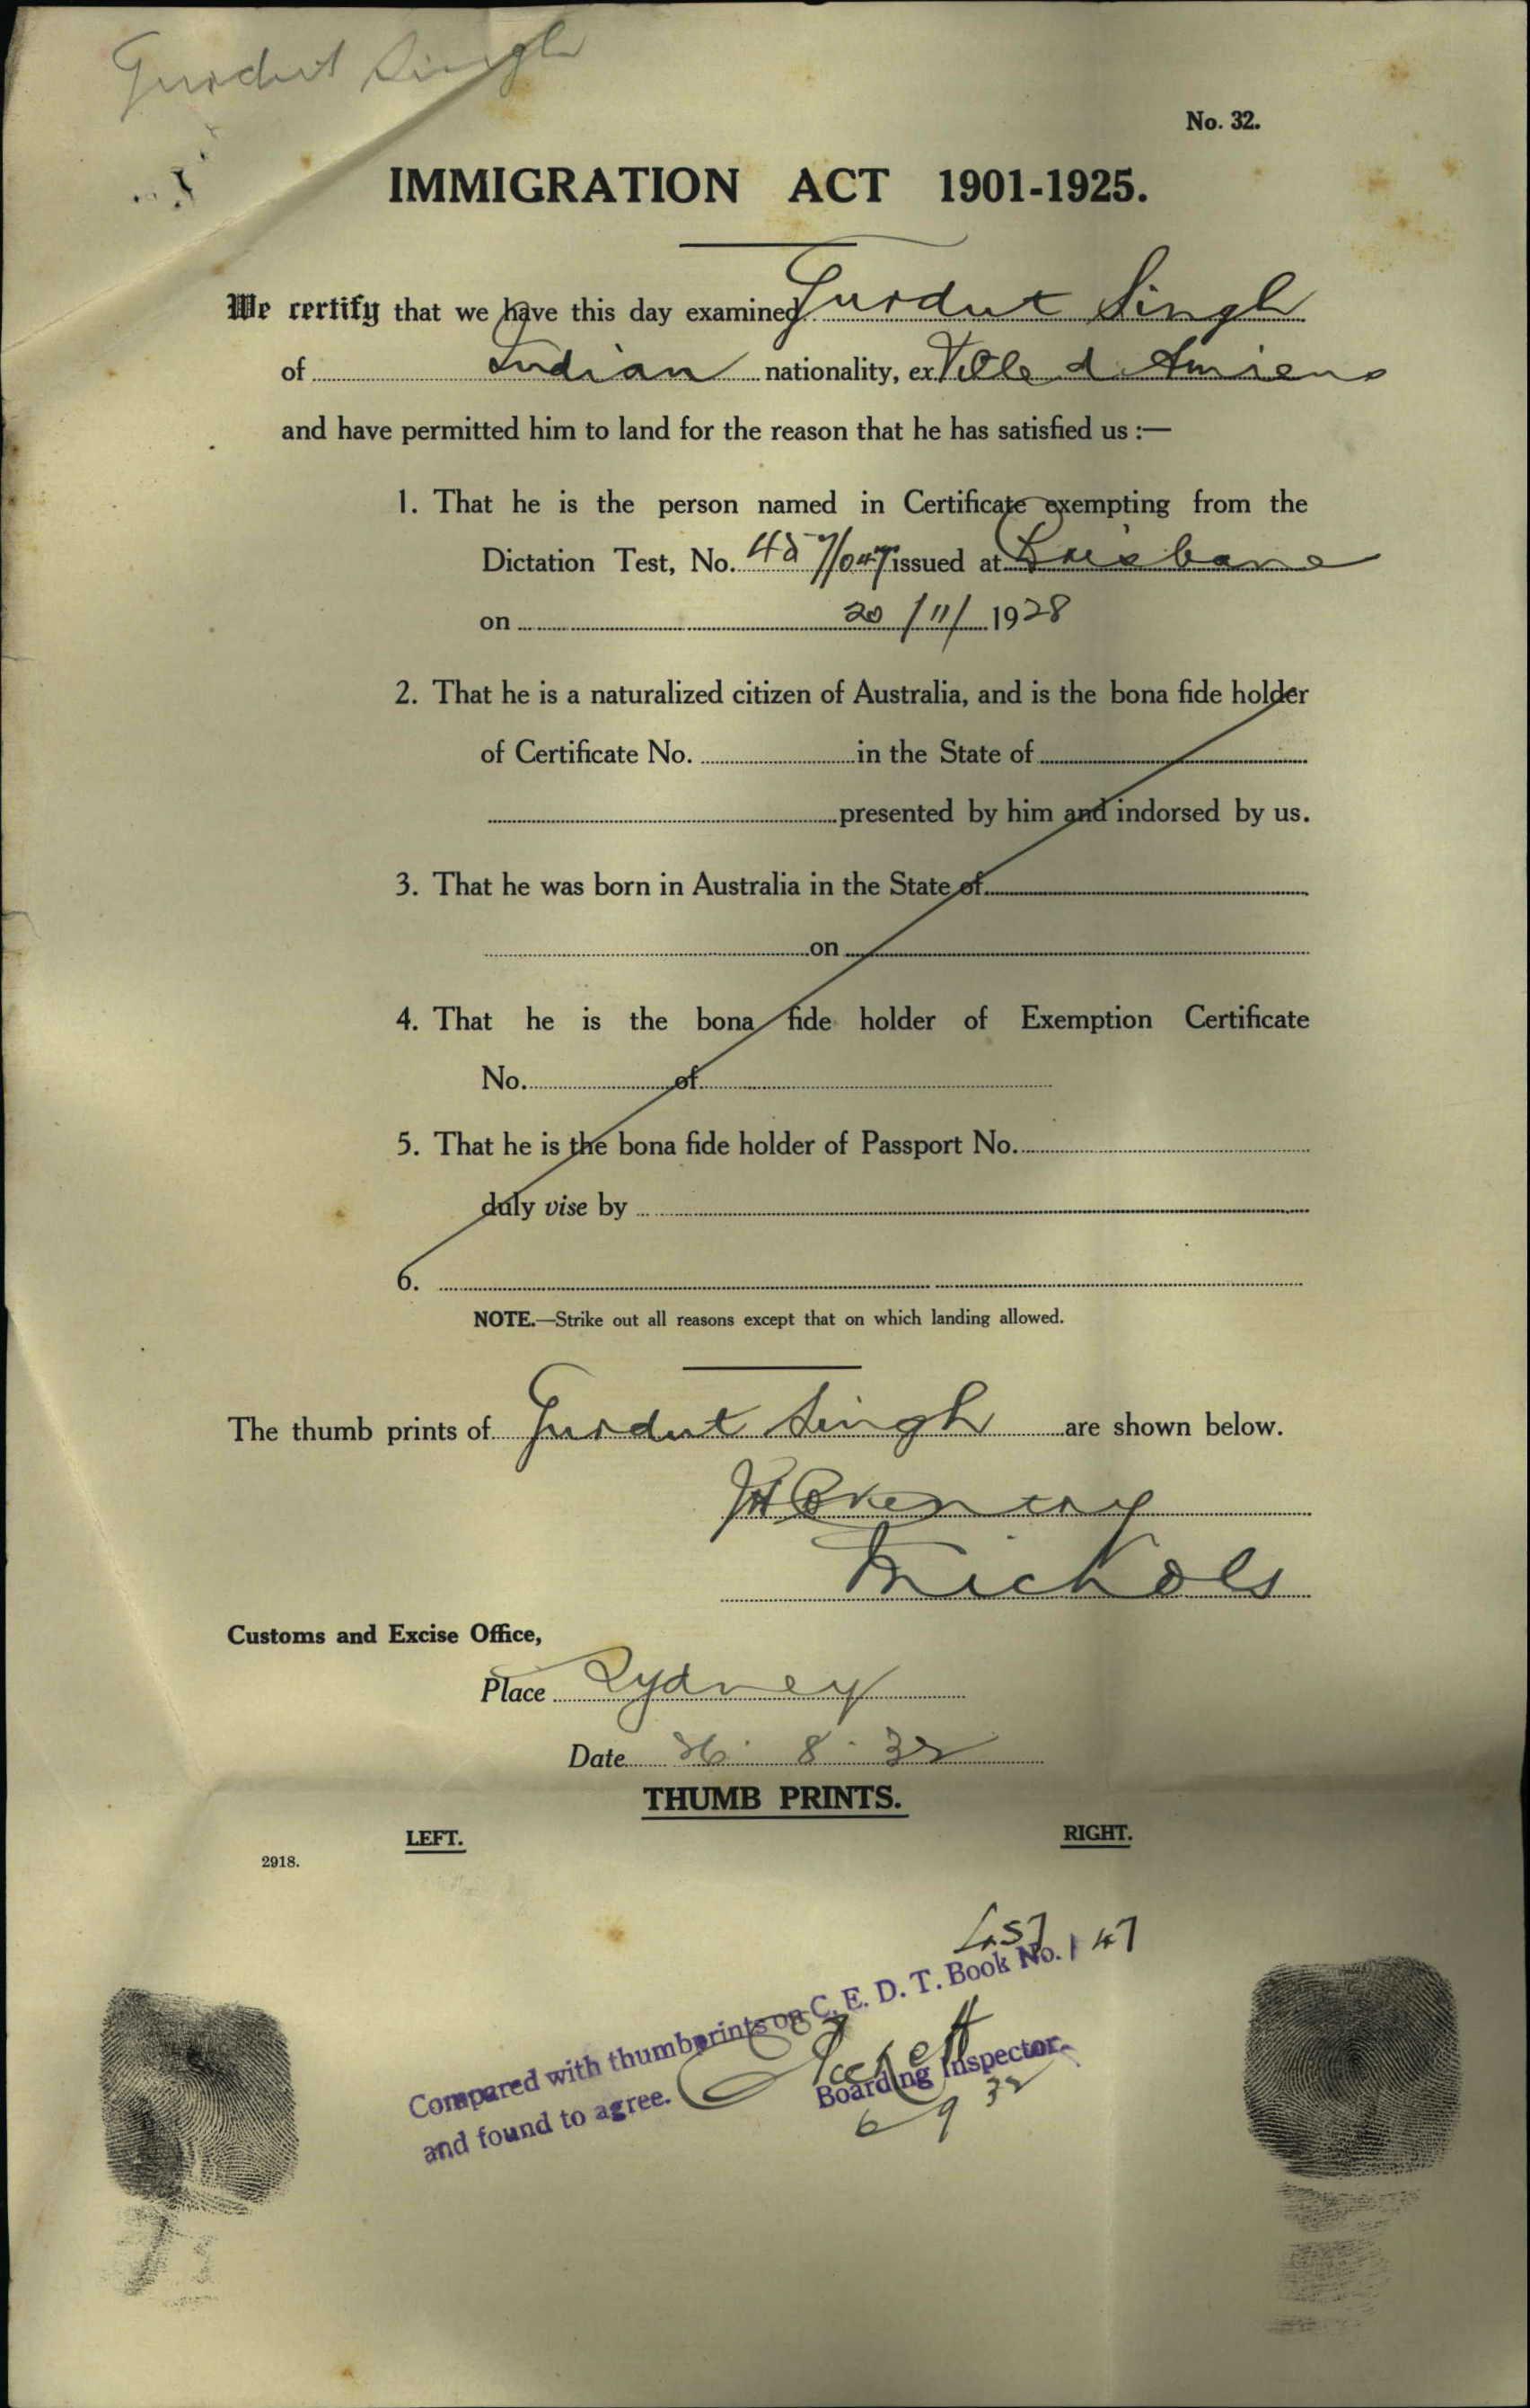 Gurdut Singh
No. 32.
IMMIGRATION ACT 1901-1925.
We certify that we have this day examined Gurdut Singh
of Indian nationality, ex Ville d Amiens
and have permitted him to land for the reason that he has satisfied us :—
1. That he is the person named in Certificate exempting from the
Dictation Test, No. 457/047 issued at Brisbane
on 20/11/1928
2. That he is a naturalized citizen of Australia, and is the bona fide holder
of Certificate No. in the State of
presented by him and indorsed by us.
3. That he was born in Australia in the State of
on
4. That he is the bona fide holder of Exemption Certificate
No. of
5. That he is the bona fide holder of Passport No.
duly vise by
6.
NOTE.—Strike out all reasons except that on which landing allowed.
The thumb prints of Gurdut Singh are shown below.
Nichols
Customs and Excise Office,
Place Sydney
Date 26. 8. 32
THUMB PRINTS.
LEFT. RIGHT.
2918.
457 47
Compared with thumbprints on C. E. D. T. Book No.
and found to agree.
Boarding Inspector.
6 9 32